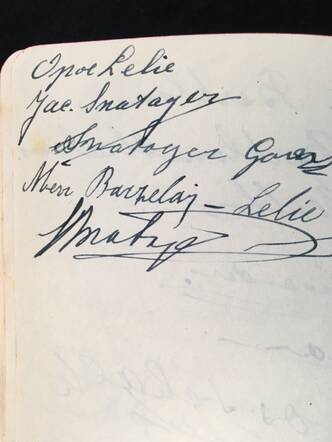 Opoe Lelie
Jac. Snatager
Snatager Goen
Mevr Barzelaij - Lelie
Snatager